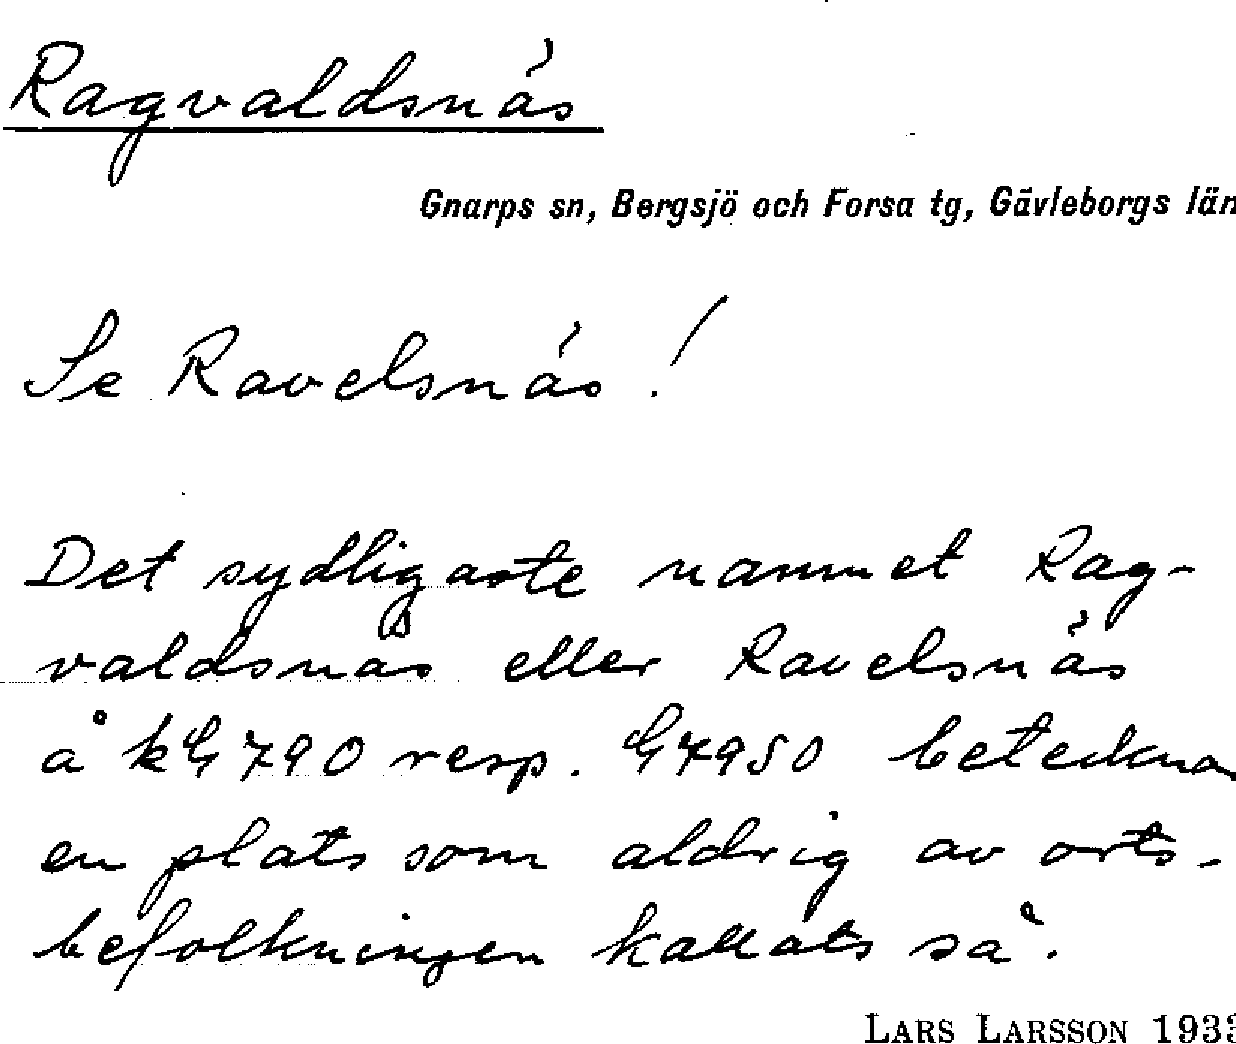 Ragvaldsnäs
Gnarps sn, Bergsjö och Forsa tg, Gävleborgs län
Se Ravelsnäs!
Det sydligaste namnet Rag-
valdsnäs eller Ravelsnäs
å kG 790 resp. G 7950 beteckna
en plats som aldrig av orts-
befolkningen kallats så.
LARS LARSSON 1933